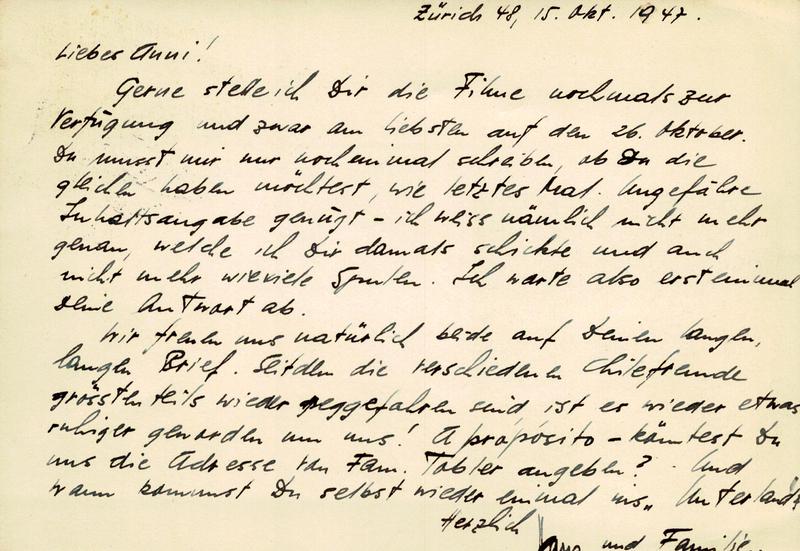 Zürich 48, 15. Okt. 1947.
Liebes Anni!
Gerne stelle ich Dir die Filme nochmals zur
Verfügung und zwar am liebsten auf den 26. Oktober.
Du musst mir nur noch einmal schreiben, ob Du die
gleichen haben möchtest, wie letztes Mal. Ungefähre
Inhaltsangabe genügt – ich weiss nämlich nicht mehr
genau, welche ich Dir damals schickte und auch
nicht mehr wieviele Spulen. Ich warte also erst einmal
Deine Antwort ab.
Wir freuen uns natürlich beide auf Deinen langen,
langen Brief. Seitdem die verschiedenen Chilefreunde
grösstenteils wieder weggefahren sind, ist es wieder etwas
ruhiger geworden um uns! A propósito – könntest Du
uns die Adresse von Fam. Tobler angeben? Und
wann kommst Du selbst wieder einmal ins „Unterland“?
Herzlich
und Familie